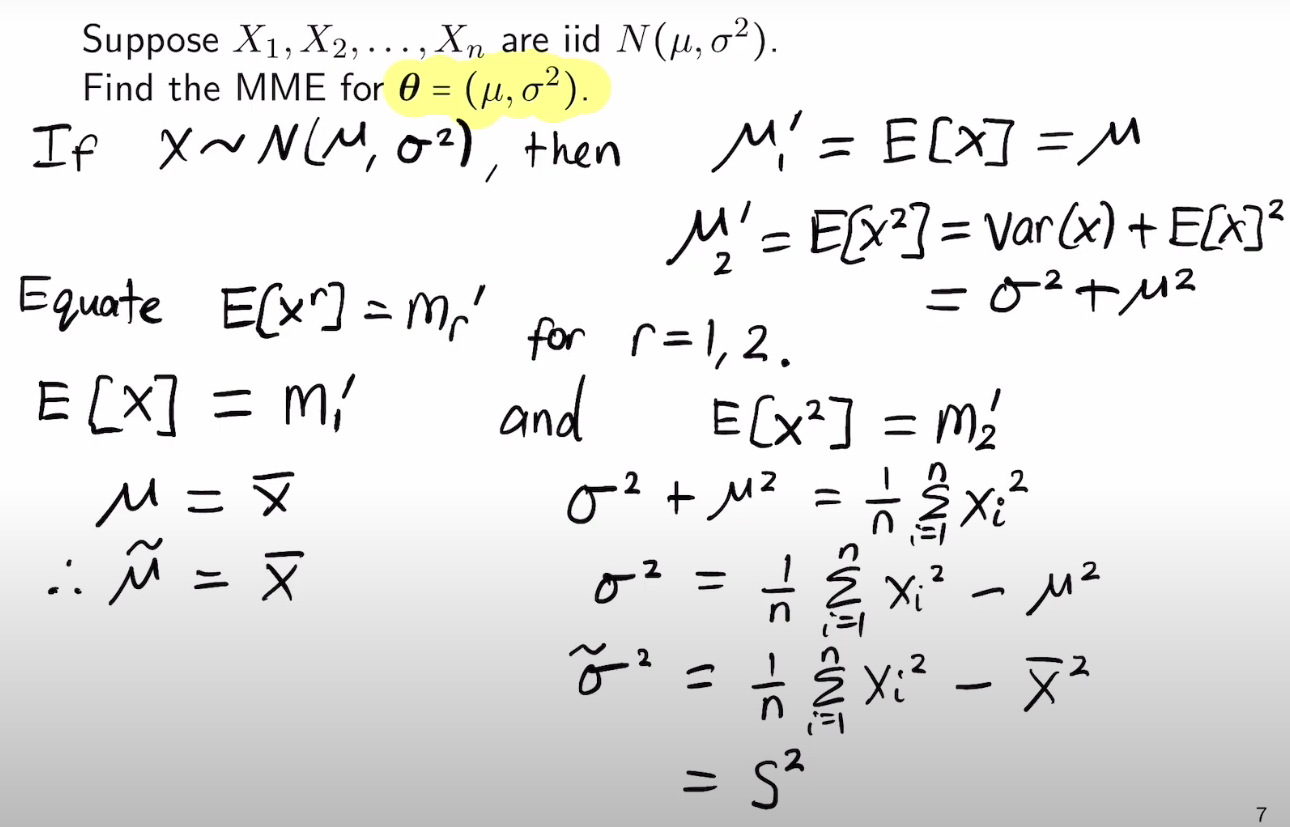 Suppose X₁, X₂, . . . , Xₙ are iid N(μ, σ²).
Find the MME for θ = (μ, σ²).
If X ~ N(μ, σ²), then μ₁′ = E[X] = μ
μ₂′ = E[X²] = Var(X) + E[X]²
= σ² + μ²
Equate E[Xʳ] = mᵣ′ for r = 1, 2.
E[X] = m₁′ and E[X²] = m₂′
μ = X̄ σ² + μ² = 1/n Σᵢ₌₁ⁿ Xᵢ²
∴ μ̃ = X̄ σ² = 1/n Σᵢ₌₁ⁿ Xᵢ² − μ²
σ̃² = 1/n Σᵢ₌₁ⁿ Xᵢ² − X̄²
= S²
7